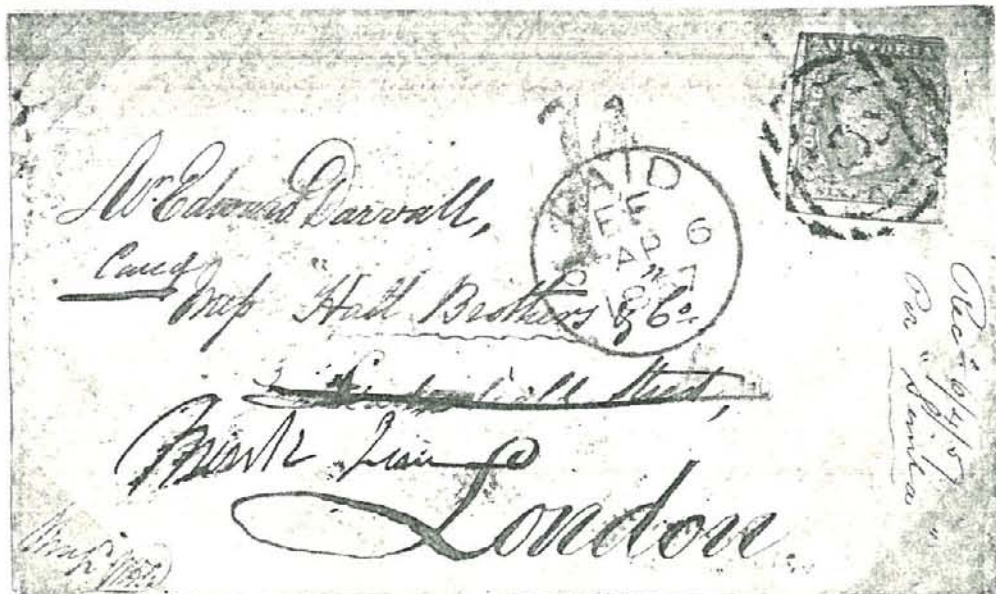 VICTORIA
PAID
EE
AP 6
1857
Mr Edward Darvall,
Care of
Mess "Hall Brothers & Co.
Street,
Mink Lane
London.
Recd 6/4/57
Per "Simla"